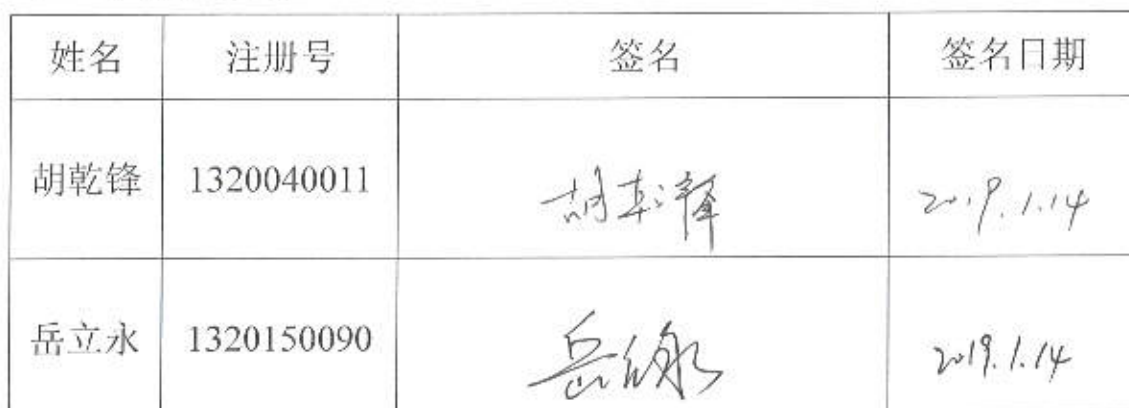 姓名 注册号 签名 签名日期
胡乾锋 1320040011 胡乾锋 2019.1.14
岳立永 1320150090 岳立永 2019.1.14